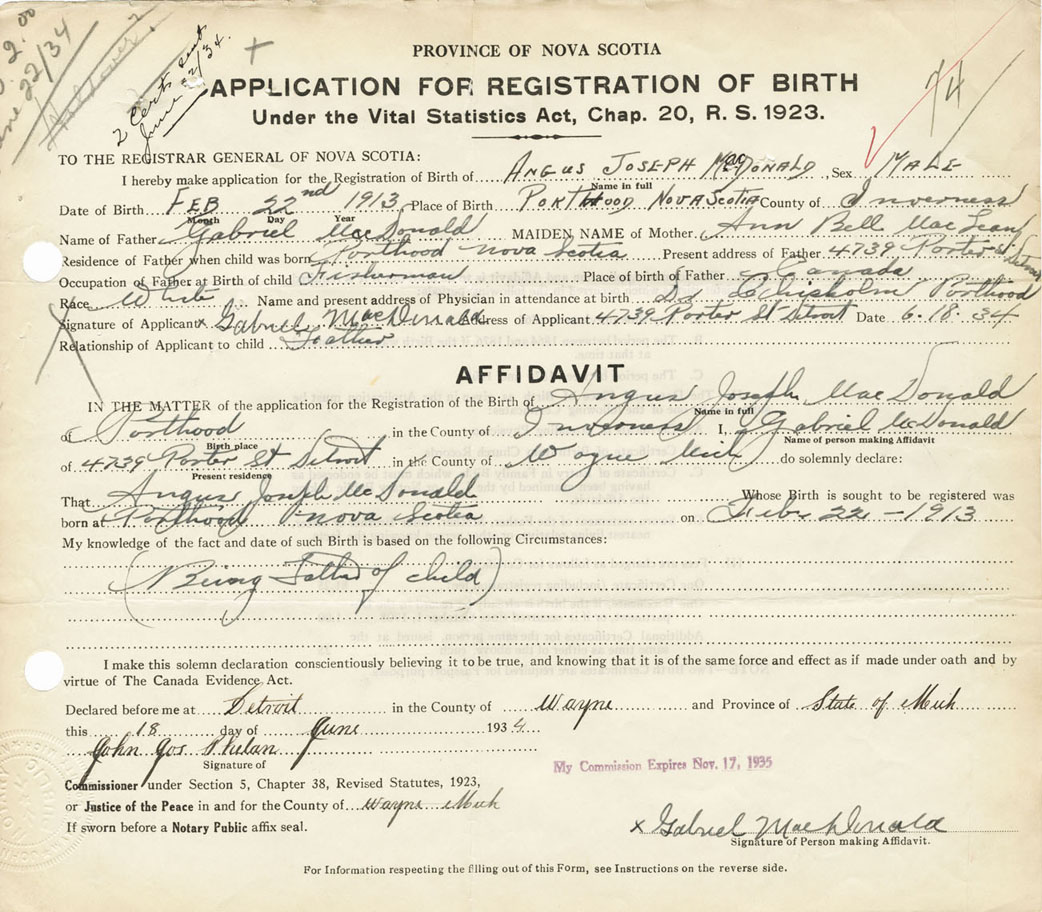 $2.00
June 22/34
2 Certs sent
June 22/34.
74
PROVINCE OF NOVA SCOTIA
APPLICATION FOR REGISTRATION OF BIRTH
Under the Vital Statistics Act, Chap. 20, R. S. 1923.
TO THE REGISTRAR GENERAL OF NOVA SCOTIA:
I hereby make application for the Registration of Birth of ANGUS JOSEPH MacDONALD, Sex MALE
Name in full
Date of Birth FEB 22nd 1913 Place of Birth PORTHOOD NOVA SCOTIA County of Inverness
Month Day Year
Name of Father Gabriel MacDonald MAIDEN NAME of Mother Ann Bell MacLean
Residence of Father when child was born Porthood nova Scotia Present address of Father 4739 Porter St Detroit
Occupation of Father at Birth of child Fisherman Place of birth of Father Canada
Race White Name and present address of Physician in attendance at birth Dr Chisholm Porthood
Signature of Applicant x Gabriel MacDonald Address of Applicant 4739 Porter St Detroit Date 6-18-34
Relationship of Applicant to child Father
AFFIDAVIT
IN THE MATTER of the application for the Registration of the Birth of Angus Joseph MacDonald
Name in full
of Porthood in the County of Inverness I, Gabriel McDonald
Birth place Name of person making Affidavit
of 4739 Porter St Detroit in the County of Wayne Mich do solemnly declare:
Present residence
That Angus Joseph McDonald Whose Birth is sought to be registered was
born at Porthood nova Scotia on Feb 22 - 1913
My knowledge of the fact and date of such Birth is based on the following Circumstances:
(Being Father of child)
I make this solemn declaration conscientiously believing it to be true, and knowing that it is of the same force and effect as if made under oath and by
virtue of The Canada Evidence Act.
Declared before me at Detroit in the County of Wayne and Province of State of Mich
this 18 day of June 1934
John Jos Phelan
Signature of
Commissioner under Section 5, Chapter 38, Revised Statutes, 1923,
My Commission Expires Nov. 17, 1935
or Justice of the Peace in and for the County of Wayne Mich
If sworn before a Notary Public affix seal.
x Gabriel MacDonald
Signature of Person making Affidavit.
For Information respecting the filling out of this Form, see Instructions on the reverse side.